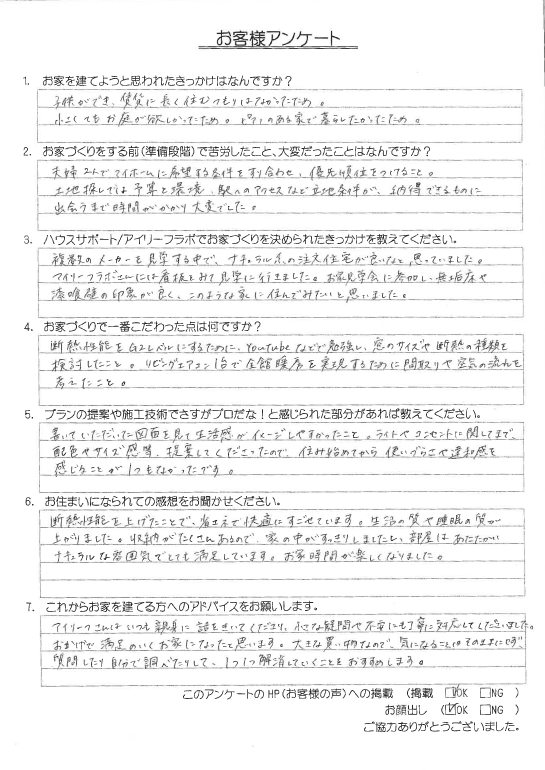 お客様アンケート
1. お家を建てようと思われたきっかけはなんですか？
子供ができ、賃貸に長く住むつもりはなかったため。
小さくてもお庭が欲しかったため。ピアノのある家で暮らしたかったため。
2. お家づくりをする前（準備段階）で苦労したこと、大変だったことはなんですか？
夫婦2人でマイホームに希望する条件をすり合わせ、優先順位をつけること。
土地探しでは予算と環境、駅へのアクセスなど立地条件が、納得できるものに
出会うまで時間がかかり大変でした。
3. ハウスサポート/アイリーフラボでお家づくりを決められたきっかけを教えてください。
複数のメーカーを見学する中で、ナチュラル系の注文住宅が良いなと思っていました。
アイリーフラボさんには看板をみて見学に行きました。お家見学会に参加し、無垢床や
漆喰壁の印象が良く、このような家に住んでみたいと思いました。
4. お家づくりで一番こだわった点は何ですか？
断熱性能をG2レベルにするために、Youtubeなどで勉強し、窓のサイズや断熱の種類を
検討したこと。リビングエアコン1台で全館暖房を実現するために間取りや空気の流れを
考えたこと。
5. プランの提案や施工技術でさすがプロだな！と感じられた部分があれば教えてください。
書いていただいた図面を見て生活感がイメージしやすかったこと。ライトやコンセントに関してまで、
配色やサイズ感等、提案してくださったので、住み始めてから使いづらさや違和感を
感じることが1つもなかったです。
6. お住まいになられての感想をお聞かせください。
断熱性能を上げたことで、省エネで快適にすごせています。生活の質や睡眠の質が
上がりました。収納がたくさんあるので、家の中がすっきりしましたし、部屋はあたたかい
ナチュラルな雰囲気でとても満足しています。お家時間が楽しくなりました。
7. これからお家を建てる方へのアドバイスをお願いします。
アイリーフさんはいつも親身に話をきいてくださり、小さな疑問や不安にも丁寧に対応してくださいました。
おかげで満足のいくお家になったと思います。大きな買い物なので、気になることはそのままにせず、
質問したり自分で調べたりして、1つ1つ解消していくことをおすすめします。
このアンケートのHP（お客様の声）への掲載 （掲載 ☑OK □NG ）
お顔出し （☑OK □NG ）
ご協力ありがとうございました。